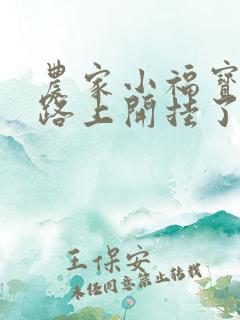 農家小福寶
路上開挂了
王保安
未經同意禁止轉載